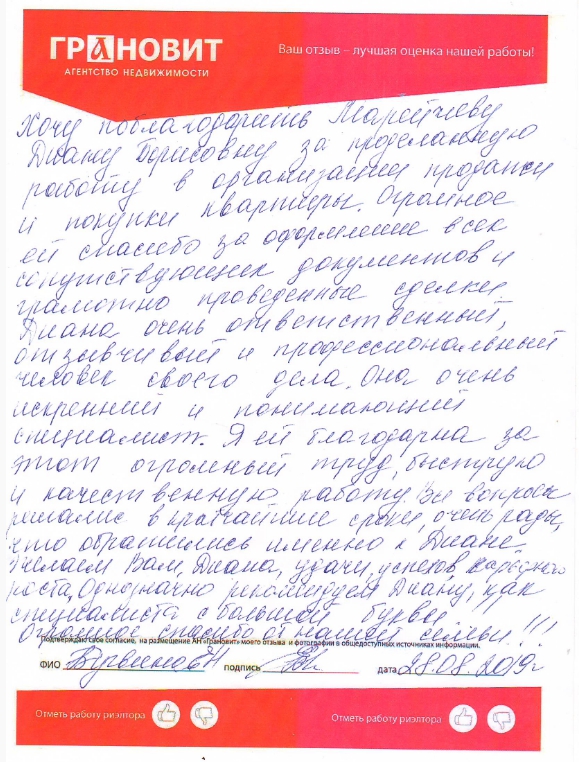 ГРАНОВИТ
АГЕНТСТВО НЕДВИЖИМОСТИ
Ваш отзыв – лучшая оценка нашей работы!
Хочу поблагодарить
Диану Борисовну за проделанную
работу в организации продажи
и покупки квартиры. Огромное
ей спасибо за оформление всех
сопутствующих документов и
грамотно проведенные сделки
Диана очень ответственный,
отзывчивый и профессиональный
человек своего дела. Она очень
искренний и понимающий
специалист. Я ей благодарна за
этот огромный труд, быструю
и качественную работу. Все вопросы
решались в кратчайшие сроки, очень рады,
что обратились именно к Диане.
Желаем Вам, Диана, удачи, успехов, карьерного
роста, Однозначно рекомендуем Диану, как
специалиста с большой буквы.
Огромное спасибо от нашей семьи!!!
Подтверждаю свое согласие, на размещение АН «Грановит» моего отзыва и фотографии в общедоступных источниках информации.
ФИО подпись дата 28.08.2019г
Отметь работу риэлтора Отметь работу риэлтора